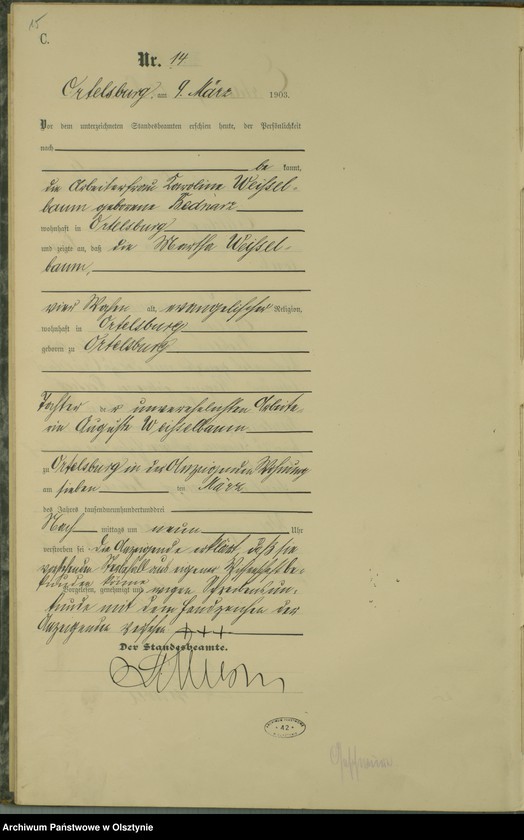 15
C.
Nr. 14
Ortelsburg am 9. März 1903.
Vor dem unterzeichneten Standesbeamten erschien heute, der Persönlichkeit
nach
be kannt,
die Arbeiterfrau Karoline Weissel-
baum geborene Bednarz
wohnhaft in Ortelsburg
und zeigte an, daß die Martha Weissel-
baum,
vier Wochen alt, evangelischer Religion,
wohnhaft in Ortelsburg
geboren zu Ortelsburg
Tochter der unverehelichten Arbeite-
rin Auguste Weisselbaum
zu Ortelsburg in der Anzeigenden Wohnung
am sieben ten März
des Jahres tausendneunhundertdrei
Nach mittags um neun Uhr
verstorben sei. Die Anzeigende erklärt, daß sie
vorstehenden Sterbefall aus eigener Wissenschaft be-
kunden könne
Vorgelesen, genehmigt und wegen Schreibensun-
kunde mit dem Handzeichen der
Anzeigenden versehen +++
Der Standesbeamte.
42
Archiwum Państwowe w Olsztynie